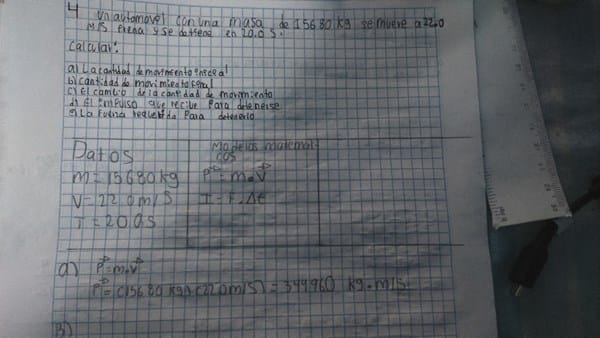 4
Un automovel con una masa de 15680 kg se mueve a 22.0
M/s frena y se detiene en 20.0 s.
Calcular:
a) La cantidad de movimiento inicial
b) Cantidad de movimiento final
c) El cambio de la cantidad de movimiento
d) El impulso que recibe para detenerse
e) La fuerza requerida para detenerlo
Datos
m=15680 kg
V=22.0 m/s
T=20.0s
Modelos matemati
cos
P=m.V
I=F.Δt
a) P=m.V
P=(15680 kg)(22.0m/s)=344960 kg.m/s
B)